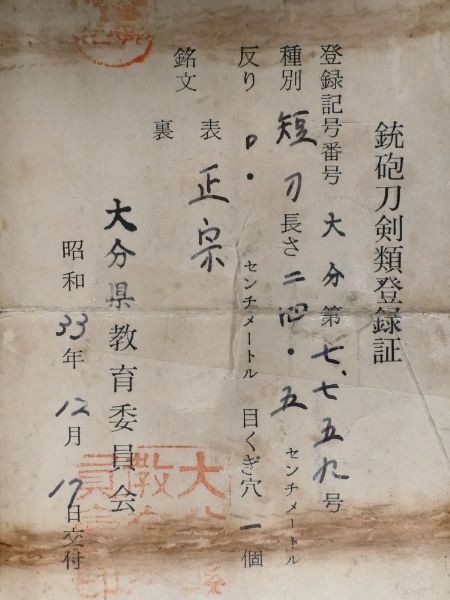 銃砲刀剣類登録証
登録記号番号 大分 第七、七五九号
種別 短刀 長さ 二四・五 センチメートル
反り 0・ センチメートル 目くぎ穴 一個
銘文 表 正宗
裏
大分県教育委員会
昭和33年12月17日交付